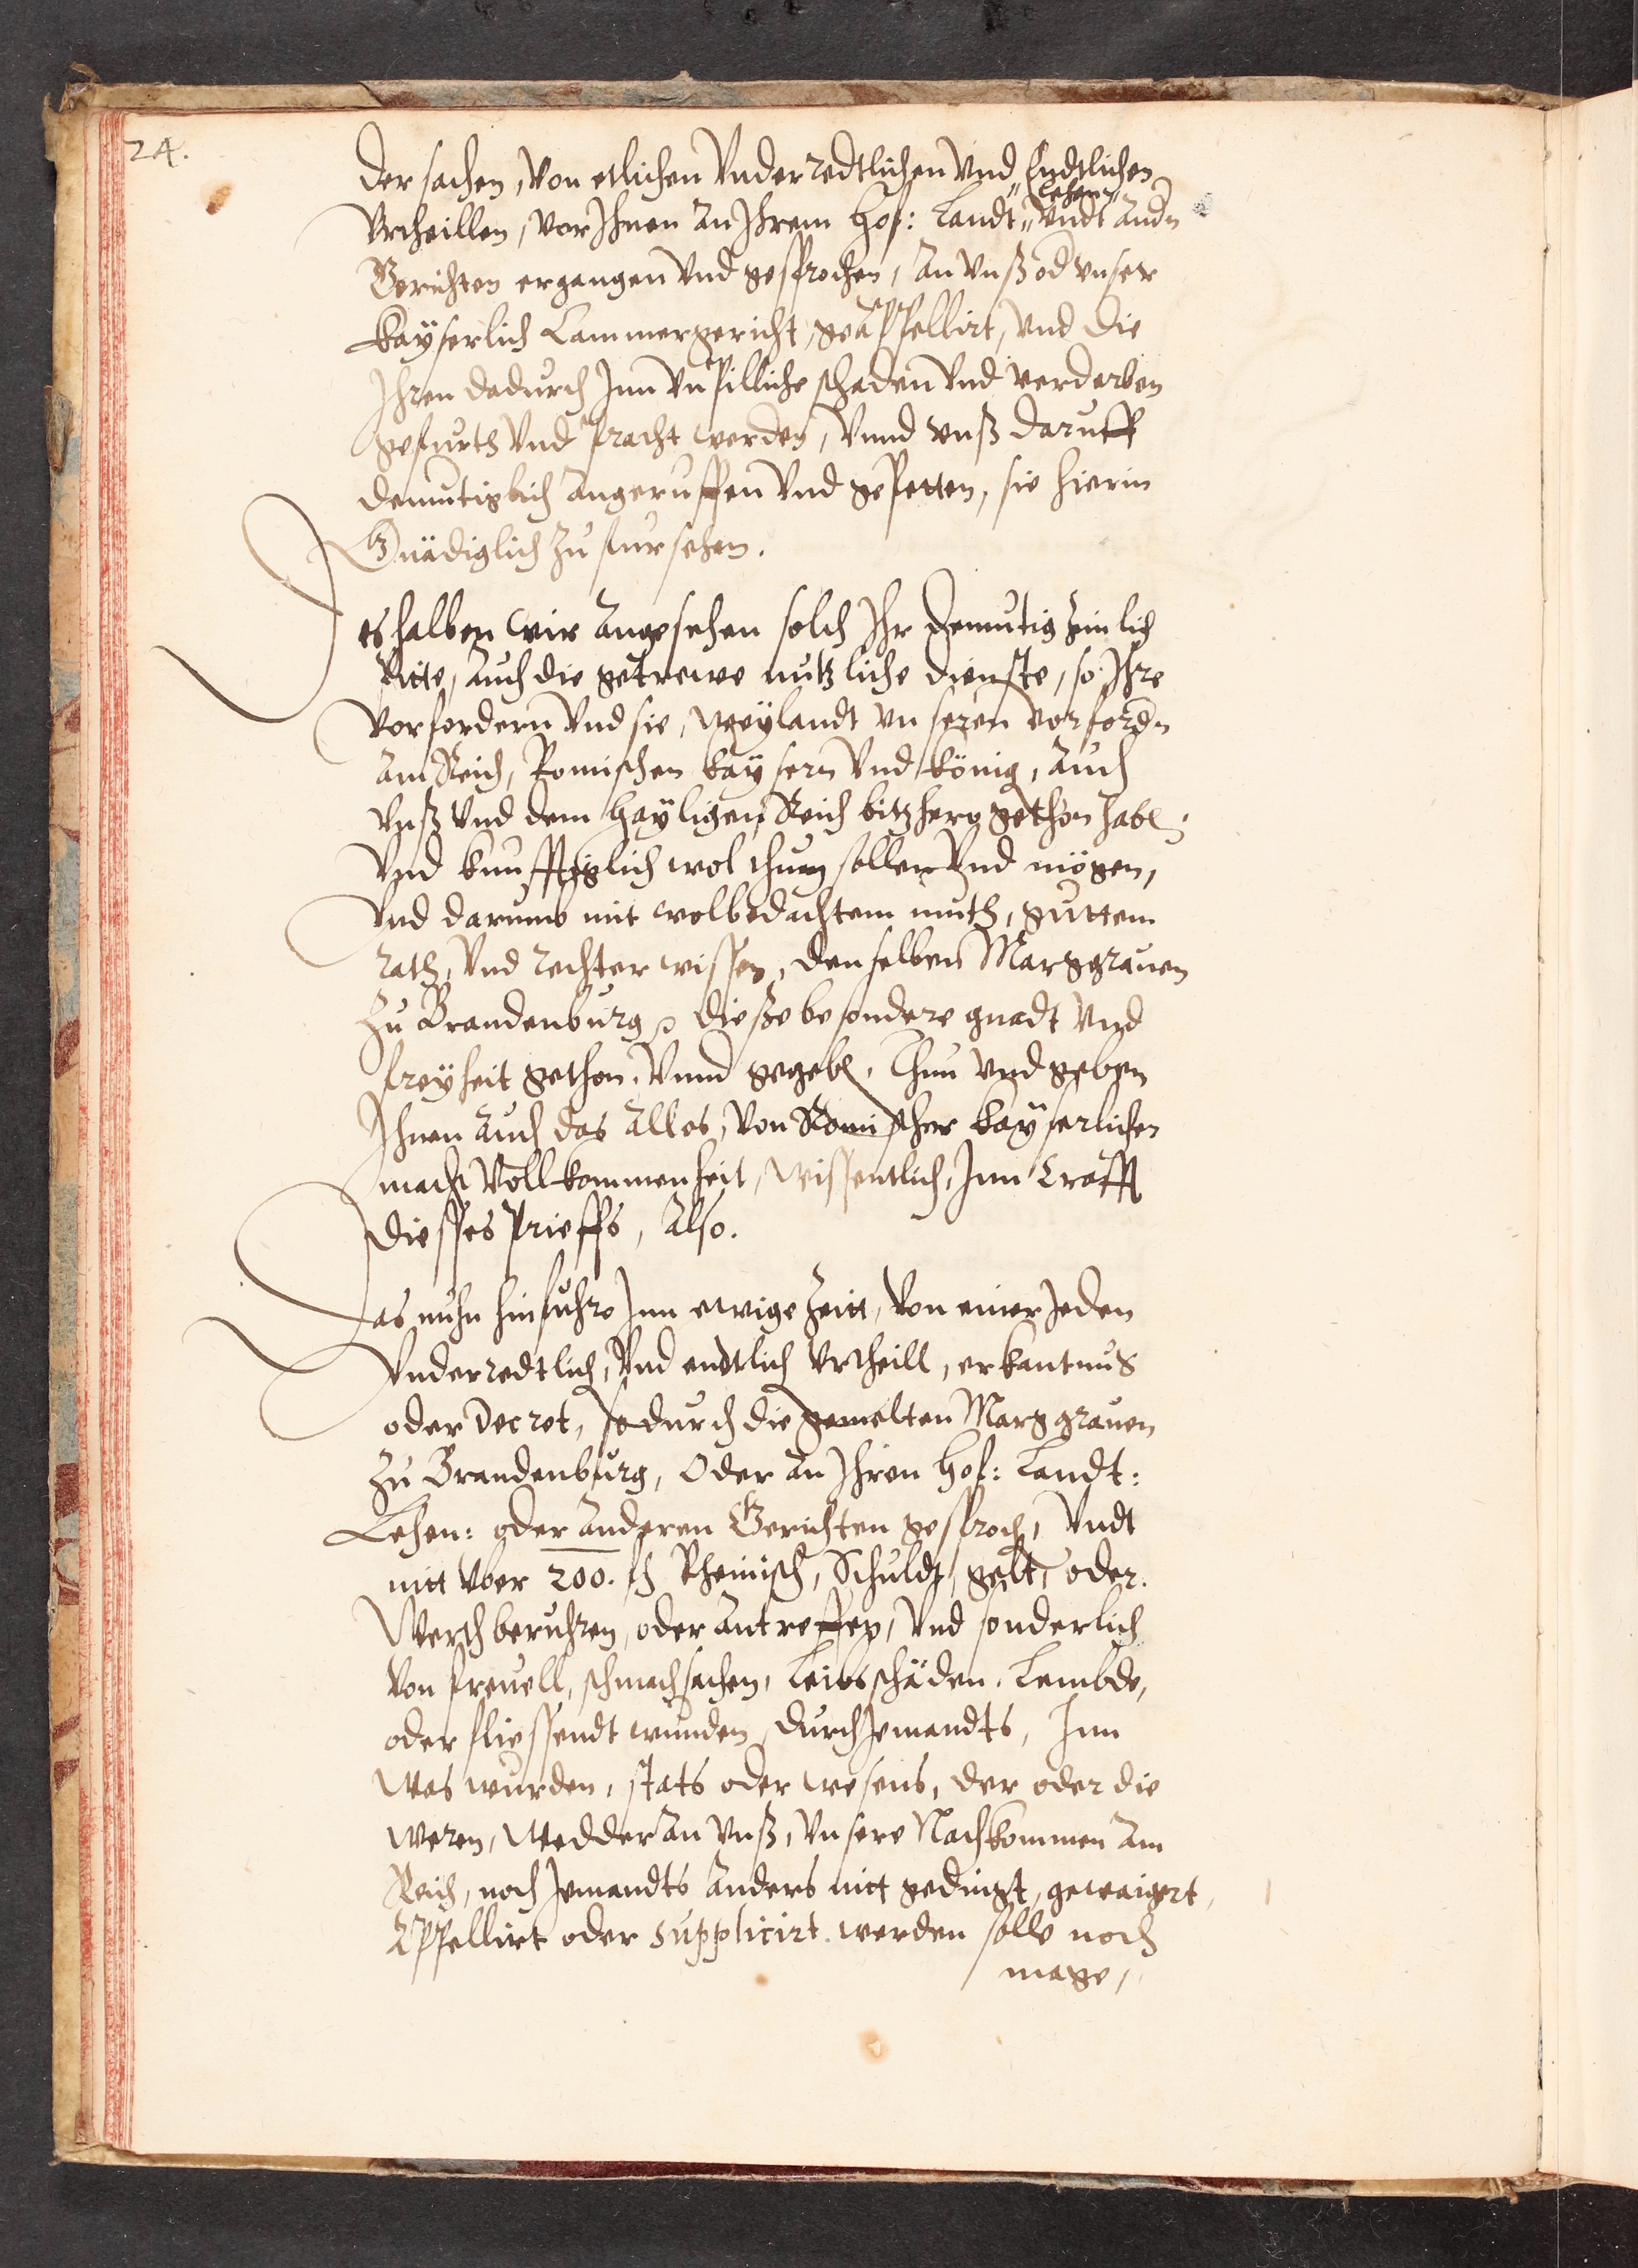 24.
der sachen, von etlichen Vnderredtlichen Vnd Endtlichen
Lehen
Vrtheillen, vor Ihnen an Ihrem Hof: Landt" Vndt andn
Gerichten ergangen Vnd gesprochen, an Vnß od vnser
Kayserlich Cammergericht, geappellirt, Vnd die
Ihren dadurch Inn vnpilliche schaden Vnd verderben
gefurth Vnd pracht werden, Vnnd vnß daruff
demutiglich angeruffen Vnd gepetten, sie hierin
Gnädiglich zu fursehen.
Deshalben wir angesehen solch Ihr demutig zimlich
Bitte, auch die getrewe nutzliche dienste, so Ihre
Vorfordern Vnd sie, weylandt vnseren vorfordn
am Reich, Romischen Kaysern Vnd König, auch
Vnß Vnd dem Hayligen Reich bitzhero gethon habe
Vnd kunfftiglich wol thun sollen Vnd mögen,
Vnd darumb mit wolbedachtem muth, guttem
rath, Vnd rechter wissen, denselben Marggrauen
zu Brandenburg dieße besondere gnadt Vnd
freyheit gethon, Vnnd gegeben, Thun vnd geben
Ihnen auch das alles, von Romischer Kayserlichen
macht Vollkommenheit, wissentlich, Inn Crafft
diesses prieffs, Also.
Das nuhn hinfuhro Inn ewige Zeitt, von einer Jeden
Vnderredtlich, Vnd endtlich vrtheill, erkantnus
oder Decret, so durch die gemelten Marggrauen
zu Brandenburg, Oder an Ihren Hof: Landt:
Lehen: oder anderen Gerichten gesproch, Vndt
nitt vber 200. fl Rheinisch, Schuldt, gelt, oder
Werth beruhren, oder antreffen, Vnd sonderlich
Von freuell, schmachsachen, Leibsschäden, Lembde,
oder fliessendt wunden, durch Jemandts, Inn
was wurden, stats oder wesens, der oder die
weren, wedder an Vnß, Vnsere Nachkommen am
Reich, noch Jemandts anders nitt gedingt, gewaigert,
Appellirt oder supplicirt werden solle noch
mage,